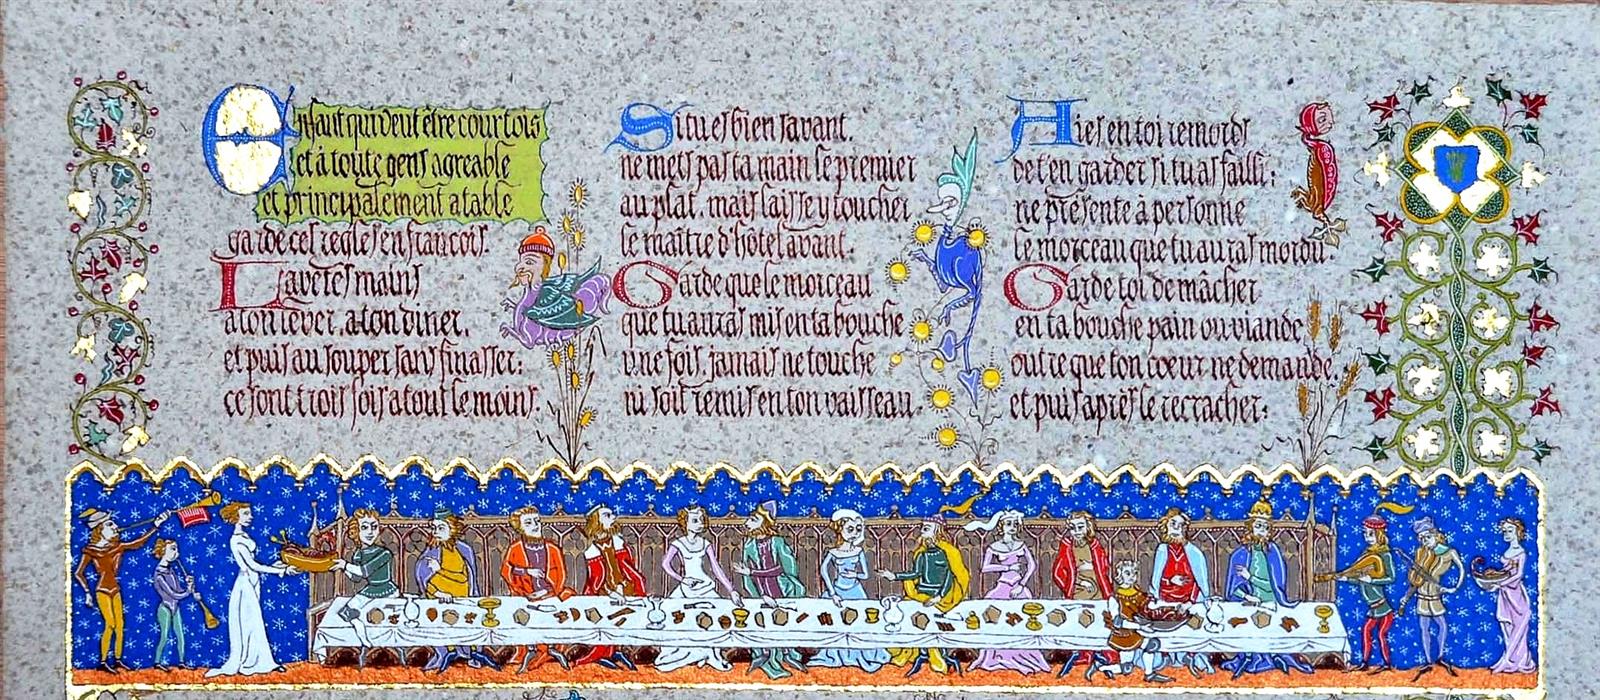 Enfant qui veut être courtois
et à toute gens agreable
et principalement a table
garde ces regles en francois.
Lave tes mains
a ton lever, a ton diner,
et puis au souper sans finasser:
ce sont trois fois a tout le moins.
Si tu es bien savant,
ne mets pas ta main le premier
au plat, mais laisse y toucher
le maître d'hôtel avant.
Garde que le morceau
que tu auras mis en ta bouche
une fois, jamais ne touche
ni soit remis en ton vaisseau.
Aies en toi remords
de t'en garder si tu as failli;
ne présente à personne
le morceau que tu auras mordu.
Garde toi de mâcher
en ta bouche pain ou viande
outre que ton coeur ne demande,
et puis après le recracher: